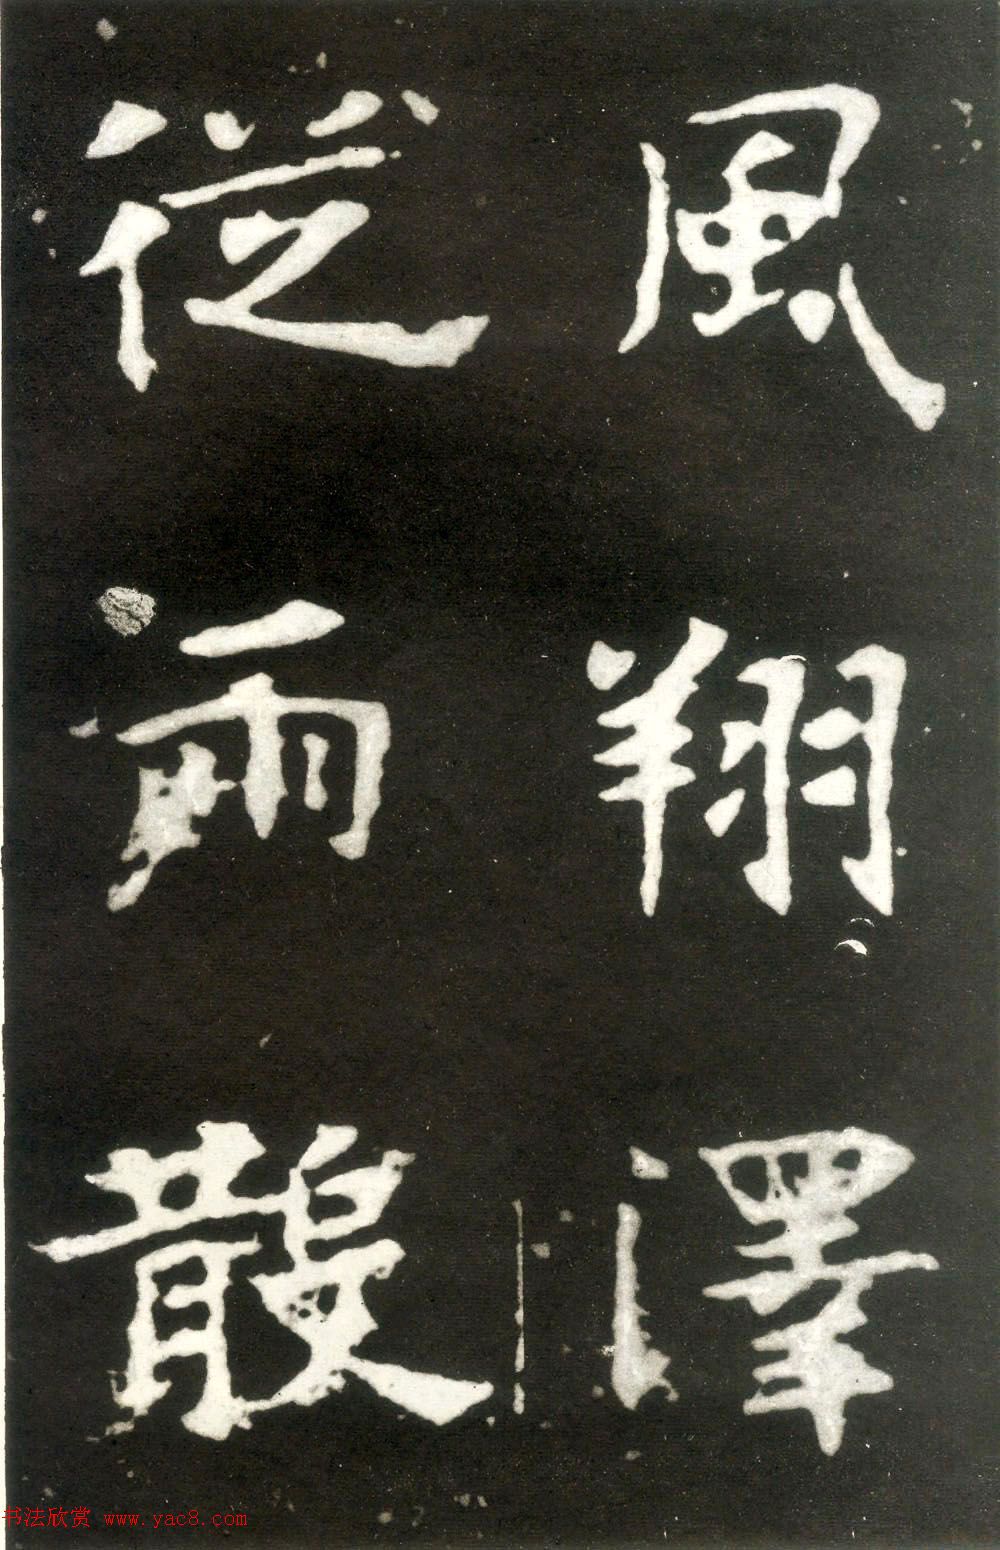 風翔澤
從雨散
书法欣赏 www.yac8.com